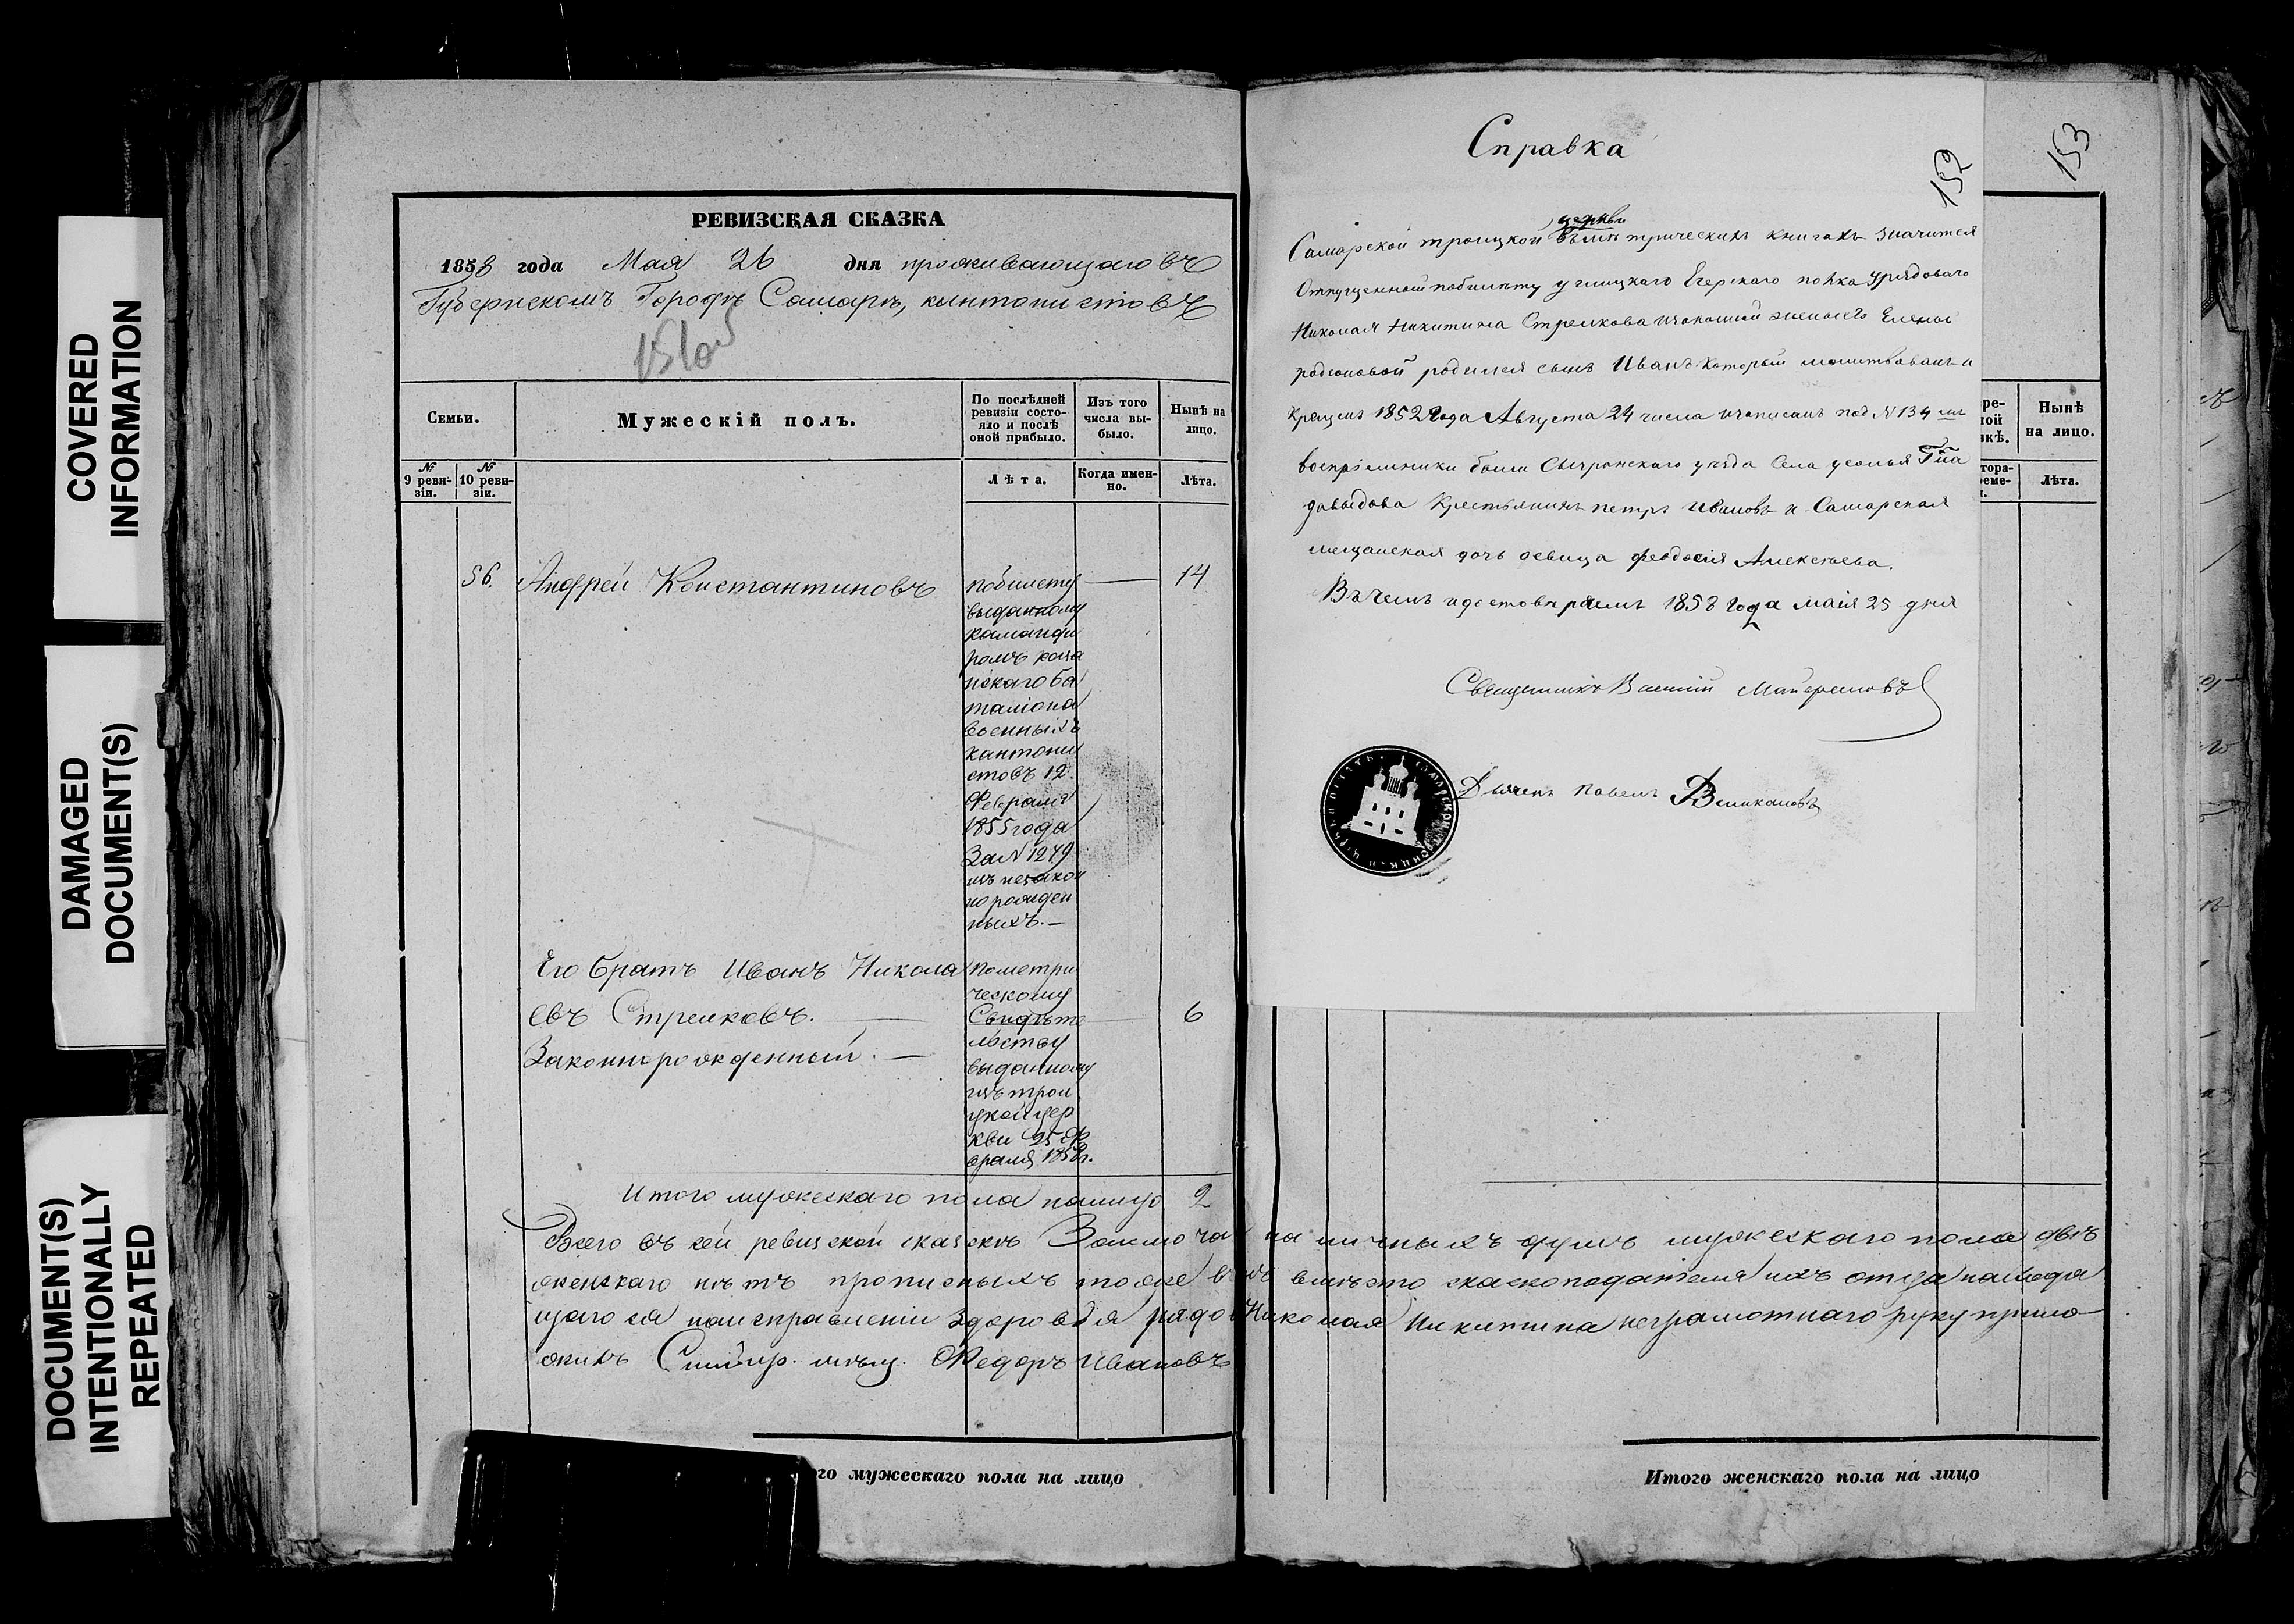 COVERED
INFORMATION
DAMAGED
DOCUMENT(S)
DOCUMENT(S)
INTENTIONALLY
REPEATED
РЕВИЗСКАЯ СКАЗКА
1858 года Мая 26 дня проживающаго въ
Губернскомъ Городѣ Самарѣ, кантонистовъ
Семьи.
Мужескій полъ.
По послѣдней
ревизіи состо-
яло и послѣ
оной прибыло.
Изъ того
числа вы-
было.
Нынѣ на
лицо.
№
9 реви-
зіи.
№
10 реви-
зіи.
Лѣта.
Когда имен-
но.
Лѣта.
56. Андрей Константиновъ
побилету
выданному
команди
ромъ каза
нскаго ба
таліона
военныхъ
кантони
стовъ 12
Февраля
1855 года
За N 1249
изъ незакон
норожден
ныхъ. —
14
Его братъ Иванъ Никола
евъ Стрелковъ. —
Законнорожденный. —
пометри
ческому
Свидѣте
льству
выданному
изъ трои
цкой цер
кви 25 Ф
враля 1858г.
6
Итого мужескаго пола налицо 2
Всего въ сей ревизской сказкѣ Заключа на личныхъ душъ мужескаго пола двѣ
женскаго нѣтъ прописныхъ тоже вмѣсто сказкоподателя ихъ отца находя
щагося наисправленіи здоровья рядов Николая Никитина неграмотнаго руку прило
жилъ Симбир. мѣщ. Федоръ Ивановъ
го мужескаго пола на лицо
Справка
152
153
церкви
Самарской троицкой въ метрическихъ книгахъ значится
Отпущенный побилету углицкаго Егерскаго полка урядоваго
Николая Никитина Стрелкова изаконной жены его Елены
родионовой родился сынъ Иванъ который молитвованъ и
крещенъ 1852 года Августа 24 числа изаписанъ под N 134 мъ
воспріемники были Сызранскаго уезда Села усолья Гна
давыдова Крестьянинъ петръ Ивановъ и Самарская
мещанская дочь девица феодосія Алексѣева.
Въ чемъ и достоверяемъ 1858 года маія 25 дня
Священникъ Василій
Дьяконъ Павелъ Великановъ
ре-
ной
кѣ.
Нынѣ
на лицо.
тора-
еме-
Лѣта.
Итого женскаго пола на лицо